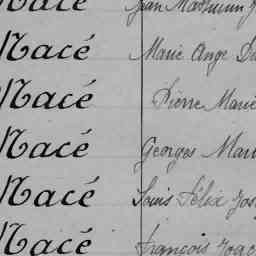 Macé Jean Mathurin
Macé Marie Ange
Macé Pierre Marie
Macé Georges
Macé Louis Félix
Macé François